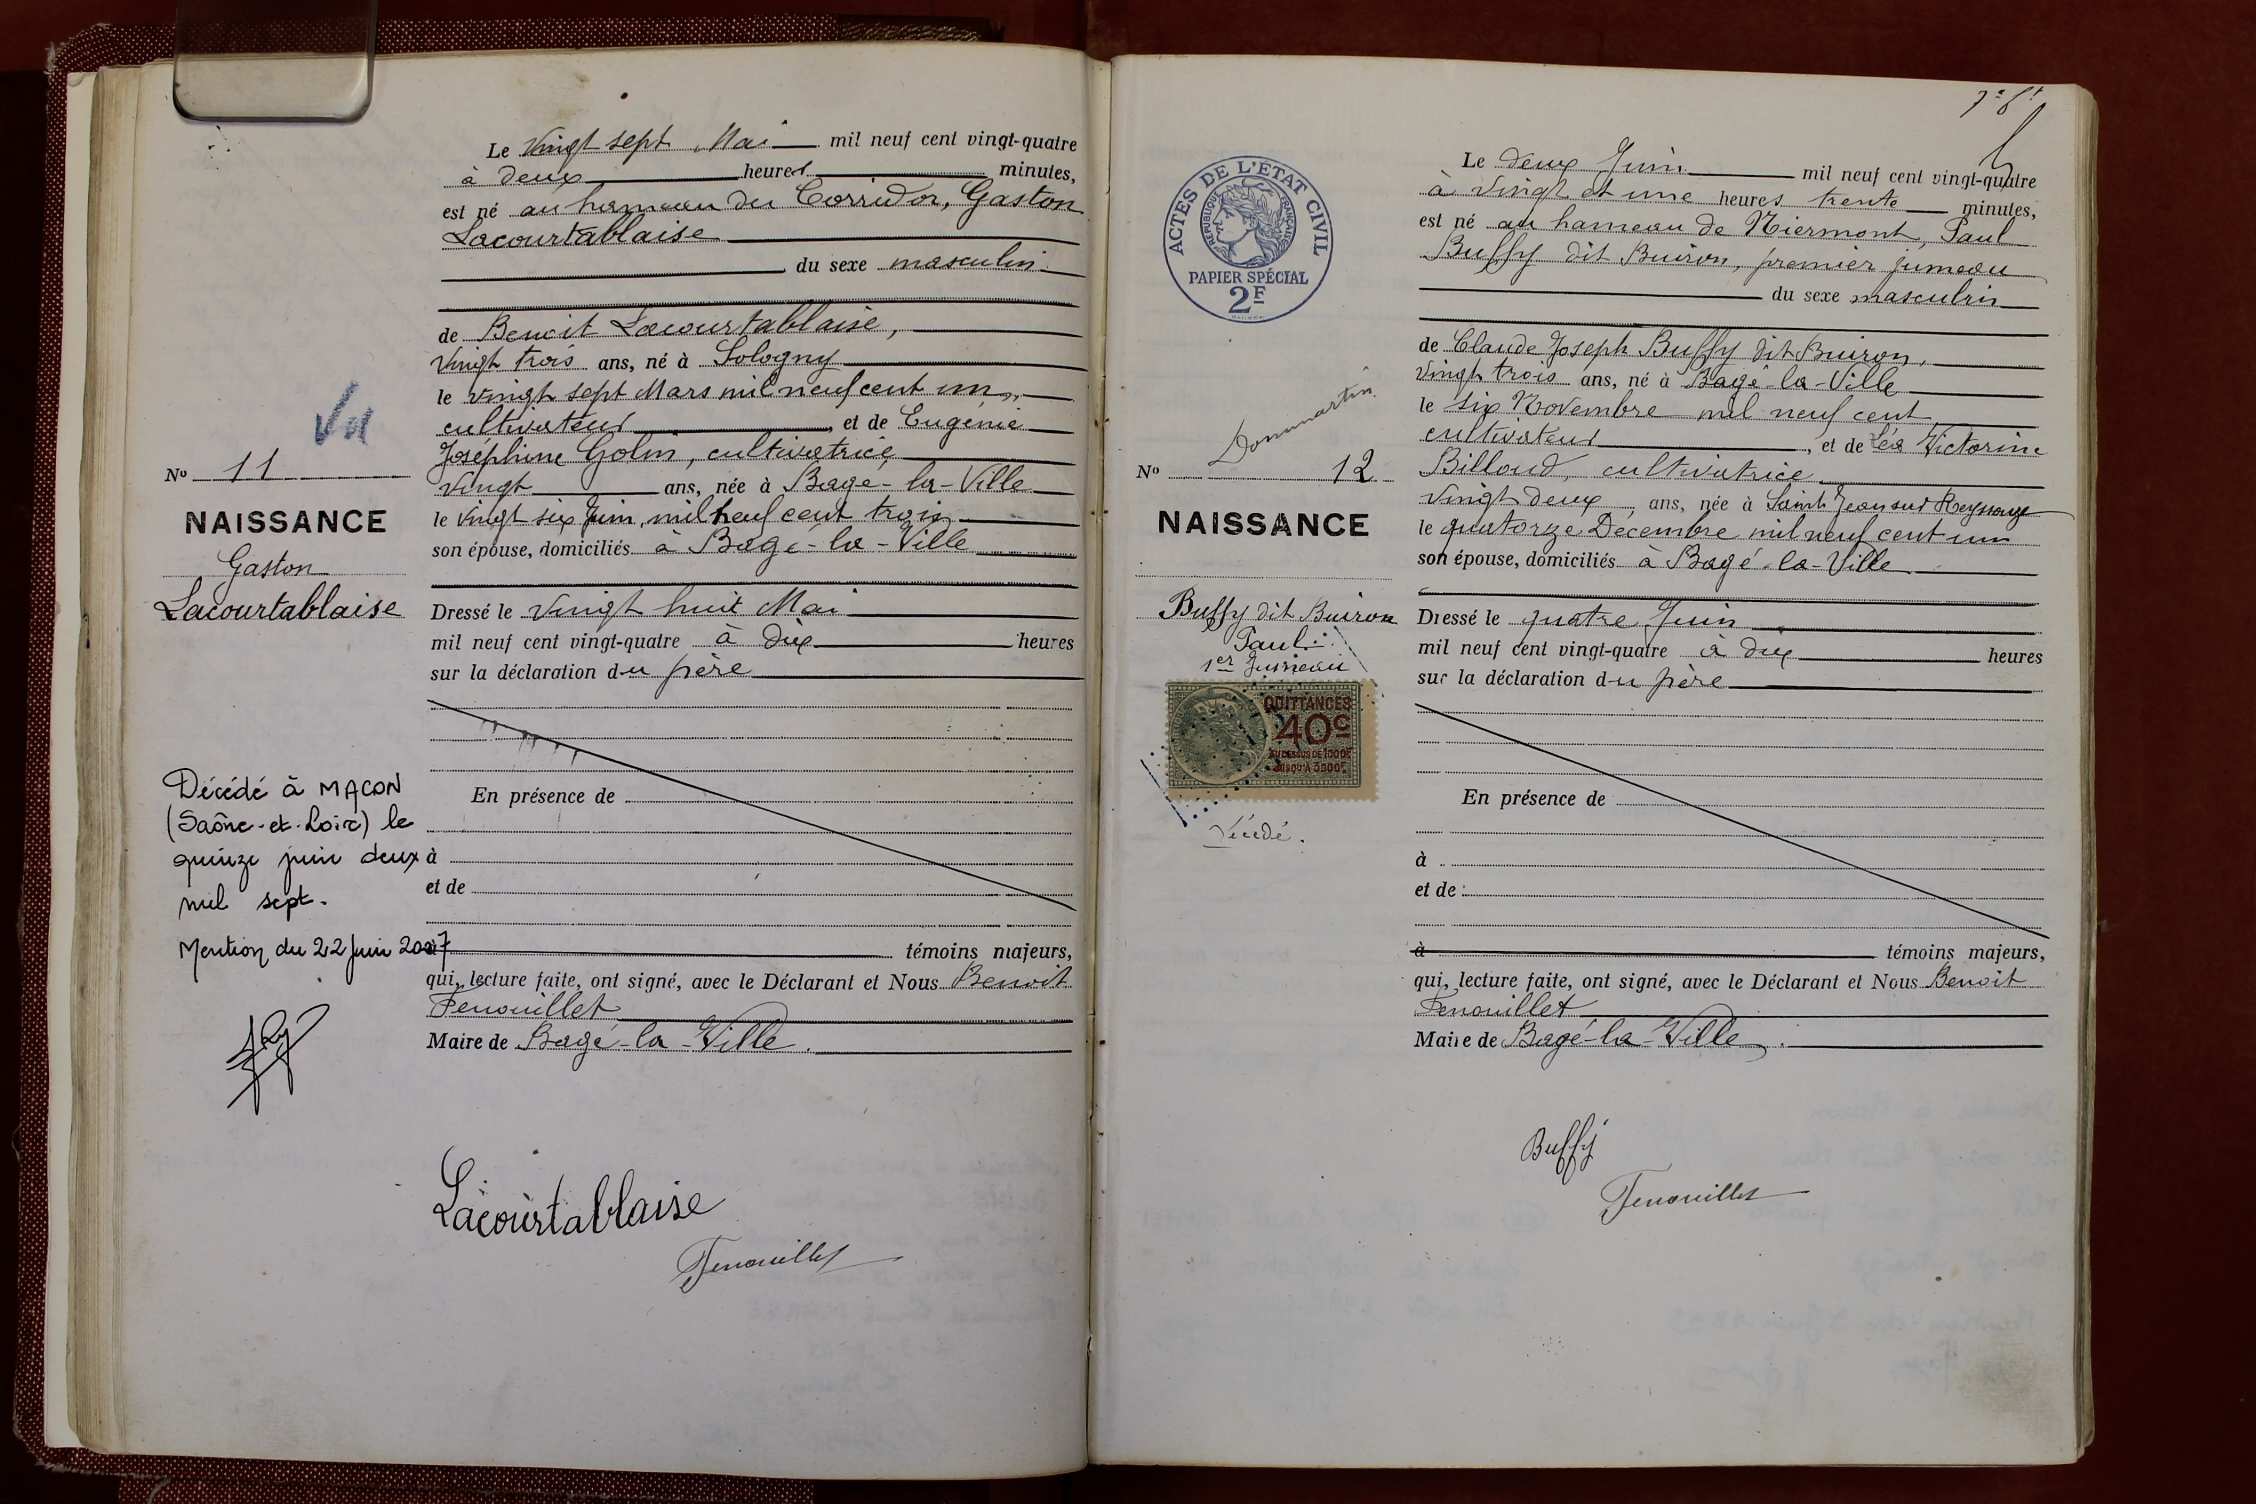 Le Vingt sept Mai mil neuf cent vingt-quatre
à deux heures minutes,
est né au hameau du Corridor, Gaston
Lacourtablaise
du sexe masculin
de Benoit Lacourtablaise,
Vingt trois ans, né à Sologny
le vingt sept Mars mil neuf cent un,
cultivateur, et de Eugénie
Joséphine Golin, cultivatrice,
Vingt ans, née à Bagé-la-Ville
le vingt six Juin, mil neuf cent trois
son épouse, domiciliés à Bagé-la-Ville
Dressé le Vingt huit Mai
mil neuf cent vingt-quatre à dix heures
sur la déclaration du père
En présence de
à
et de
à témoins majeurs,
qui, lecture faite, ont signé, avec le Déclarant et Nous Benoit
Fenouillet
Maire de Bagé-la-Ville.
Lacourtablaise
Fenouillet
Vu
No 11
NAISSANCE
Gaston
Lacourtablaise
Décédé à MACON
(Saône-et-Loire) le
quinze juin deux
mil sept.
Mention du 22 Juin 2007
ACTES DE L'ÉTAT CIVIL
RÉPUBLIQUE FRANÇAISE
PAPIER SPÉCIAL
2F
Dommartin
No 12
NAISSANCE
Buffy dit Buiron
Paul
1er Jumeau
QUITTANCES
40c
AU DESSUS DE 1000F
JUSQU'À 3000F
Décédé.
7e ft
Le deux Juin mil neuf cent vingt-quatre
à vingt et une heures trente minutes,
est né au hameau de Niermont, Paul
Buffy dit Buiron, premier jumeau
du sexe masculin
de Claude Joseph Buffy dit Buiron,
Vingt trois ans, né à Bagé-la-Ville
le six Novembre mil neuf cent
cultivateur, et de Léa Victorine
Billoud, cultivatrice
Vingt deux, ans, née à Saint Jean sur Reyssouze
le quatorze Décembre mil neuf cent un
son épouse, domiciliés à Bagé-la-Ville
Dressé le quatre Juin
mil neuf cent vingt-quatre à dix heures
sur la déclaration du père
En présence de
à
et de
à témoins majeurs,
qui, lecture faite, ont signé, avec le Déclarant et Nous Benoit
Fenouillet
Maire de Bagé-la-Ville.
Buffy
Fenouillet